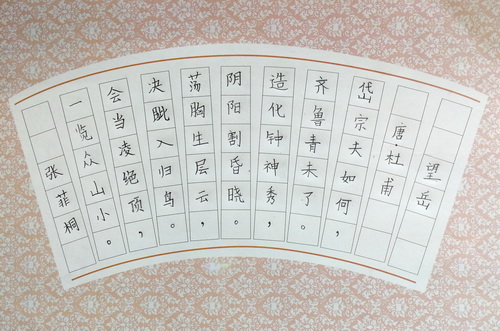 望岳
唐·杜甫
岱宗夫如何，
齐鲁青未了。
造化钟神秀，
阴阳割昏晓。
荡胸生层云，
决眦入归鸟。
会当凌绝顶，
一览众山小。
张菲桐